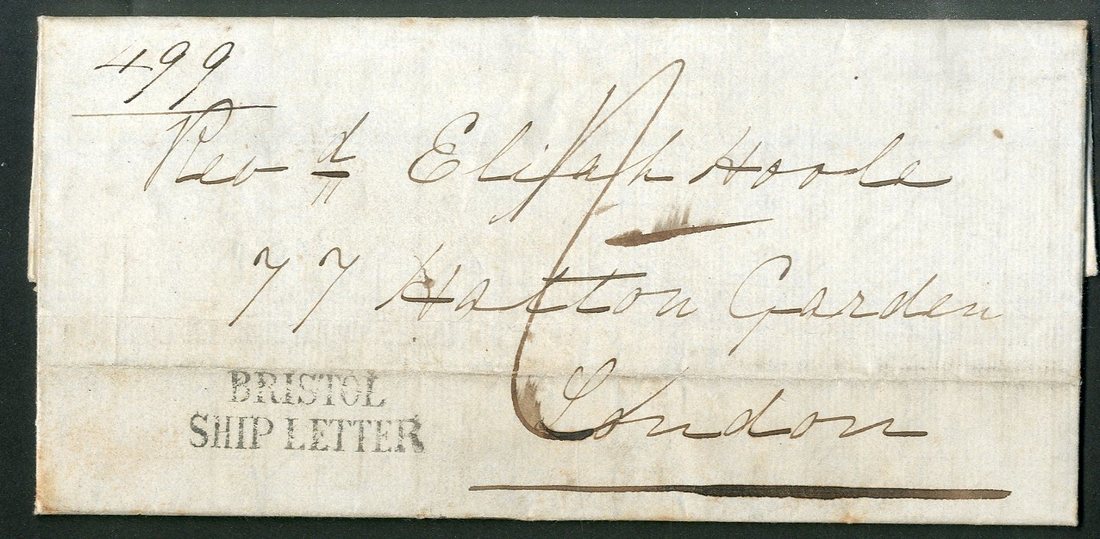 499
Revd Elijah Hoole
77 Hatton Garden
London
BRISTOL
SHIP LETTER